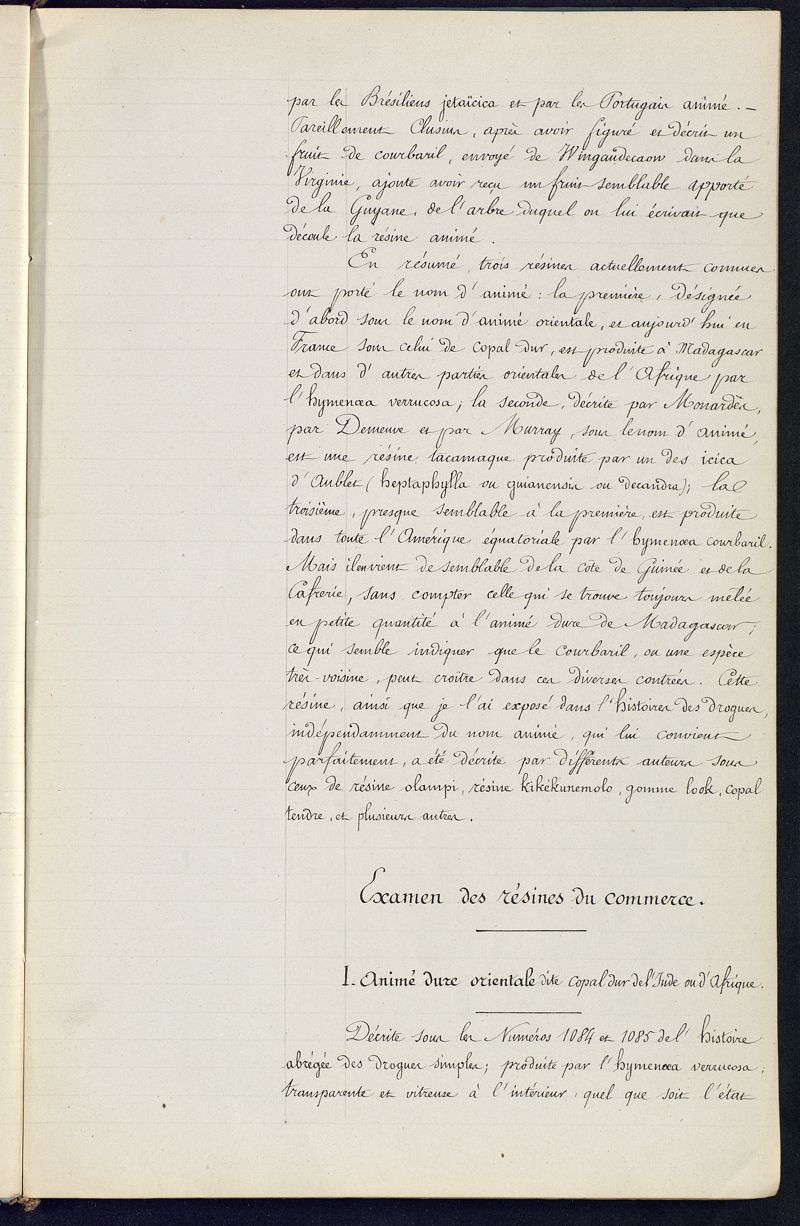 par les Brésiliens jetaïcica et par les Portugais animé. —
Pareillement Clusius, après avoir figuré et décrit un
fruit de courbaril, envoyé de Wingandecaow dans la
Virginie, ajoute avoir reçu un fruit semblable apporté
de la Guyane, de l'arbre duquel on lui écrivait que
découle la résine animé.
En résumé, trois résines actuellement connues
ont porté le nom d'animé : la première, désignée
d'abord sous le nom d'animé orientale, et aujourd'hui en
France sous celui de copal dur, est produite à Madagascar
et dans d'autres parties orientales de l'Afrique par
l'hymenœa verrucosa; la seconde, décrite par Monardès,
par Demeuve et par Murray, sous le nom d'animé,
est une résine tacamaque produite par un des icica
d'Aublet (heptaphylla ou guianensis ou decandra); la
troisième, presque semblable à la première, est produite
dans toute l'Amérique équatoriale par l'hymenœa courbaril.
Mais il en vient de semblable de la côte de Guinée et de la
Cafrerie, sans compter celle qui se trouve toujours mêlée
en petite quantité à l'animé dure de Madagascar;
ce qui semble indiquer que le courbaril, ou une espèce
très-voisine, peut croître dans ces diverses contrées. Cette
résine, ainsi que je l'ai exposé dans l'histoires des drogues,
indépendamment du nom animé, qui lui convient
parfaitement, a été décrite par différents auteurs sous
ceux de résine olampi, résine kikékunemolo, gomme look, copal
tendre, et plusieurs autres.
Examen des résines du commerce.
I. Animé dure orientale dite copal dur de l'Inde ou d'Afrique.
Décrite sous les Numéros 1084 et 1085 de l'histoire
abrégée des drogues simples; produite par l'hymenœa verrucosa;
transparente et vitreuse à l'intérieur, quel que soit l'état